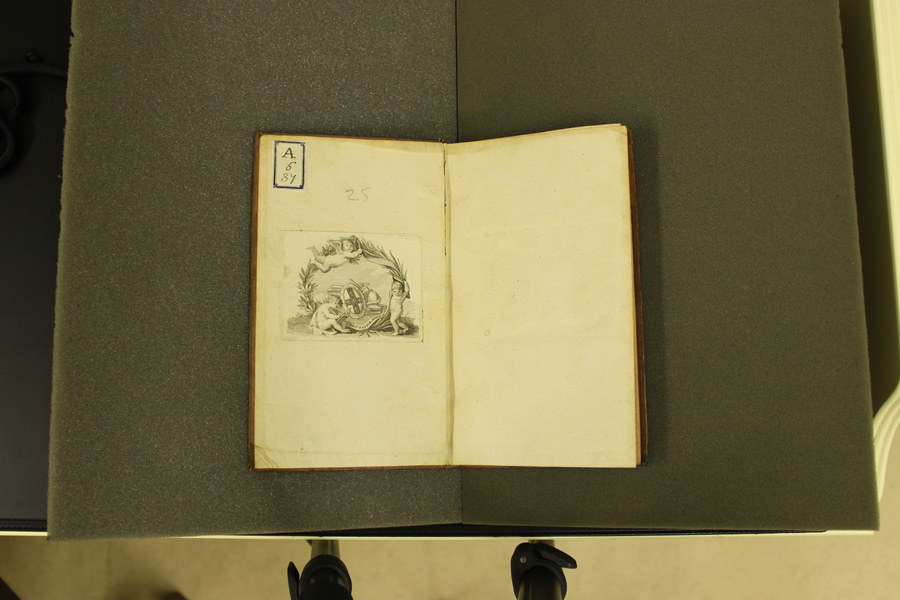 A
6
37
25